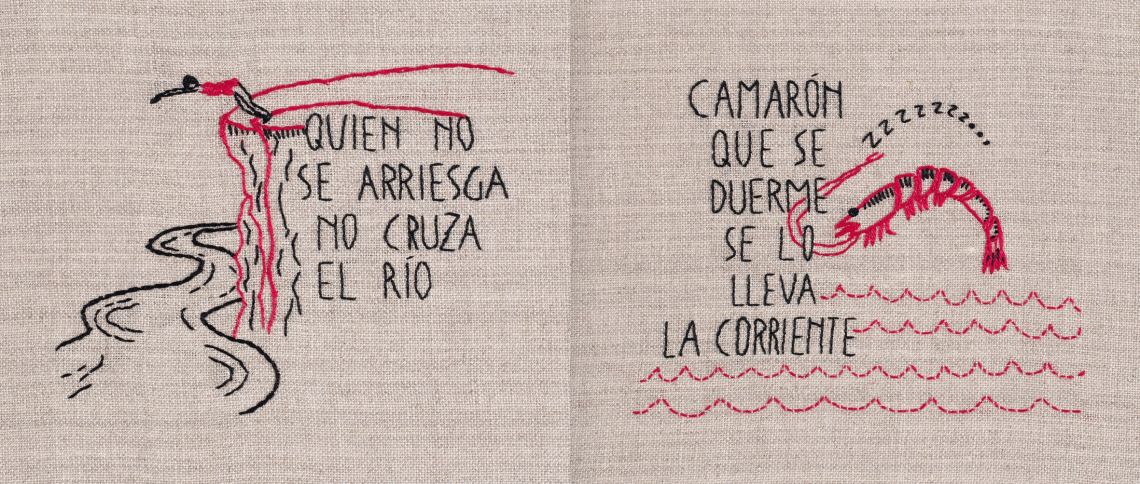 QUIEN NO
SE ARRIESGA
NO CRUZA
EL RÍO
CAMARÓN
QUE SE
DUERME
SE LO
LLEVA
LA CORRIENTE
zzzzzzz...